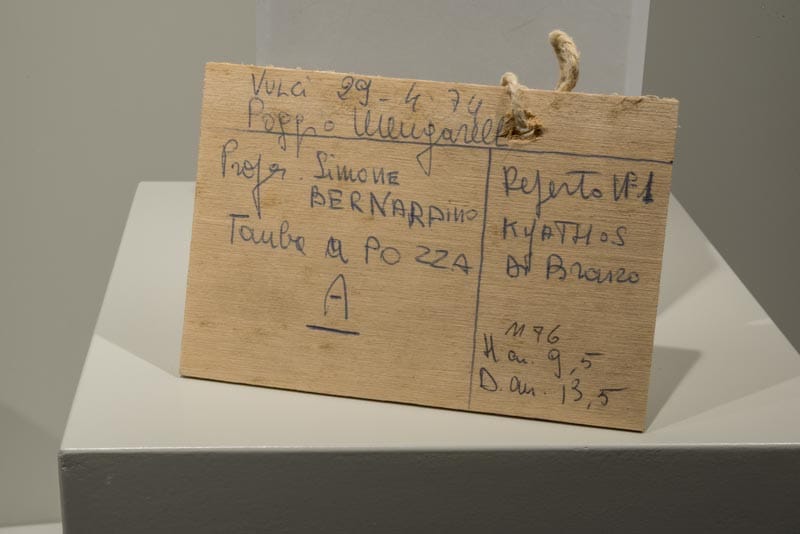 VULCI 29-4 74
Poggio Mengarell
Profr. Simone
BERNARDINO
Tomba a POZZA
A
Referto N°1
KYATHOS
Di Bronzo
1176
H cm. 9,5
D. cm. 13,5